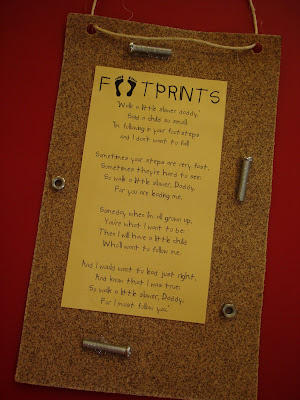 FOOTPRINTS
"Walk a little slower daddy,"
Said a child so small.
"I'm following in your footsteps
and I don't want to fall.
Sometimes your steps are very fast,
Sometimes they're hard to see;
So walk a little slower, Daddy,
For you are leading me.
Someday when I'm all grown up,
You're what I want to be;
Then I will have a little child
Who'll want to follow me.
And I would want to lead just right,
And know that I was true;
So walk a little slower, Daddy,
For I must follow you."